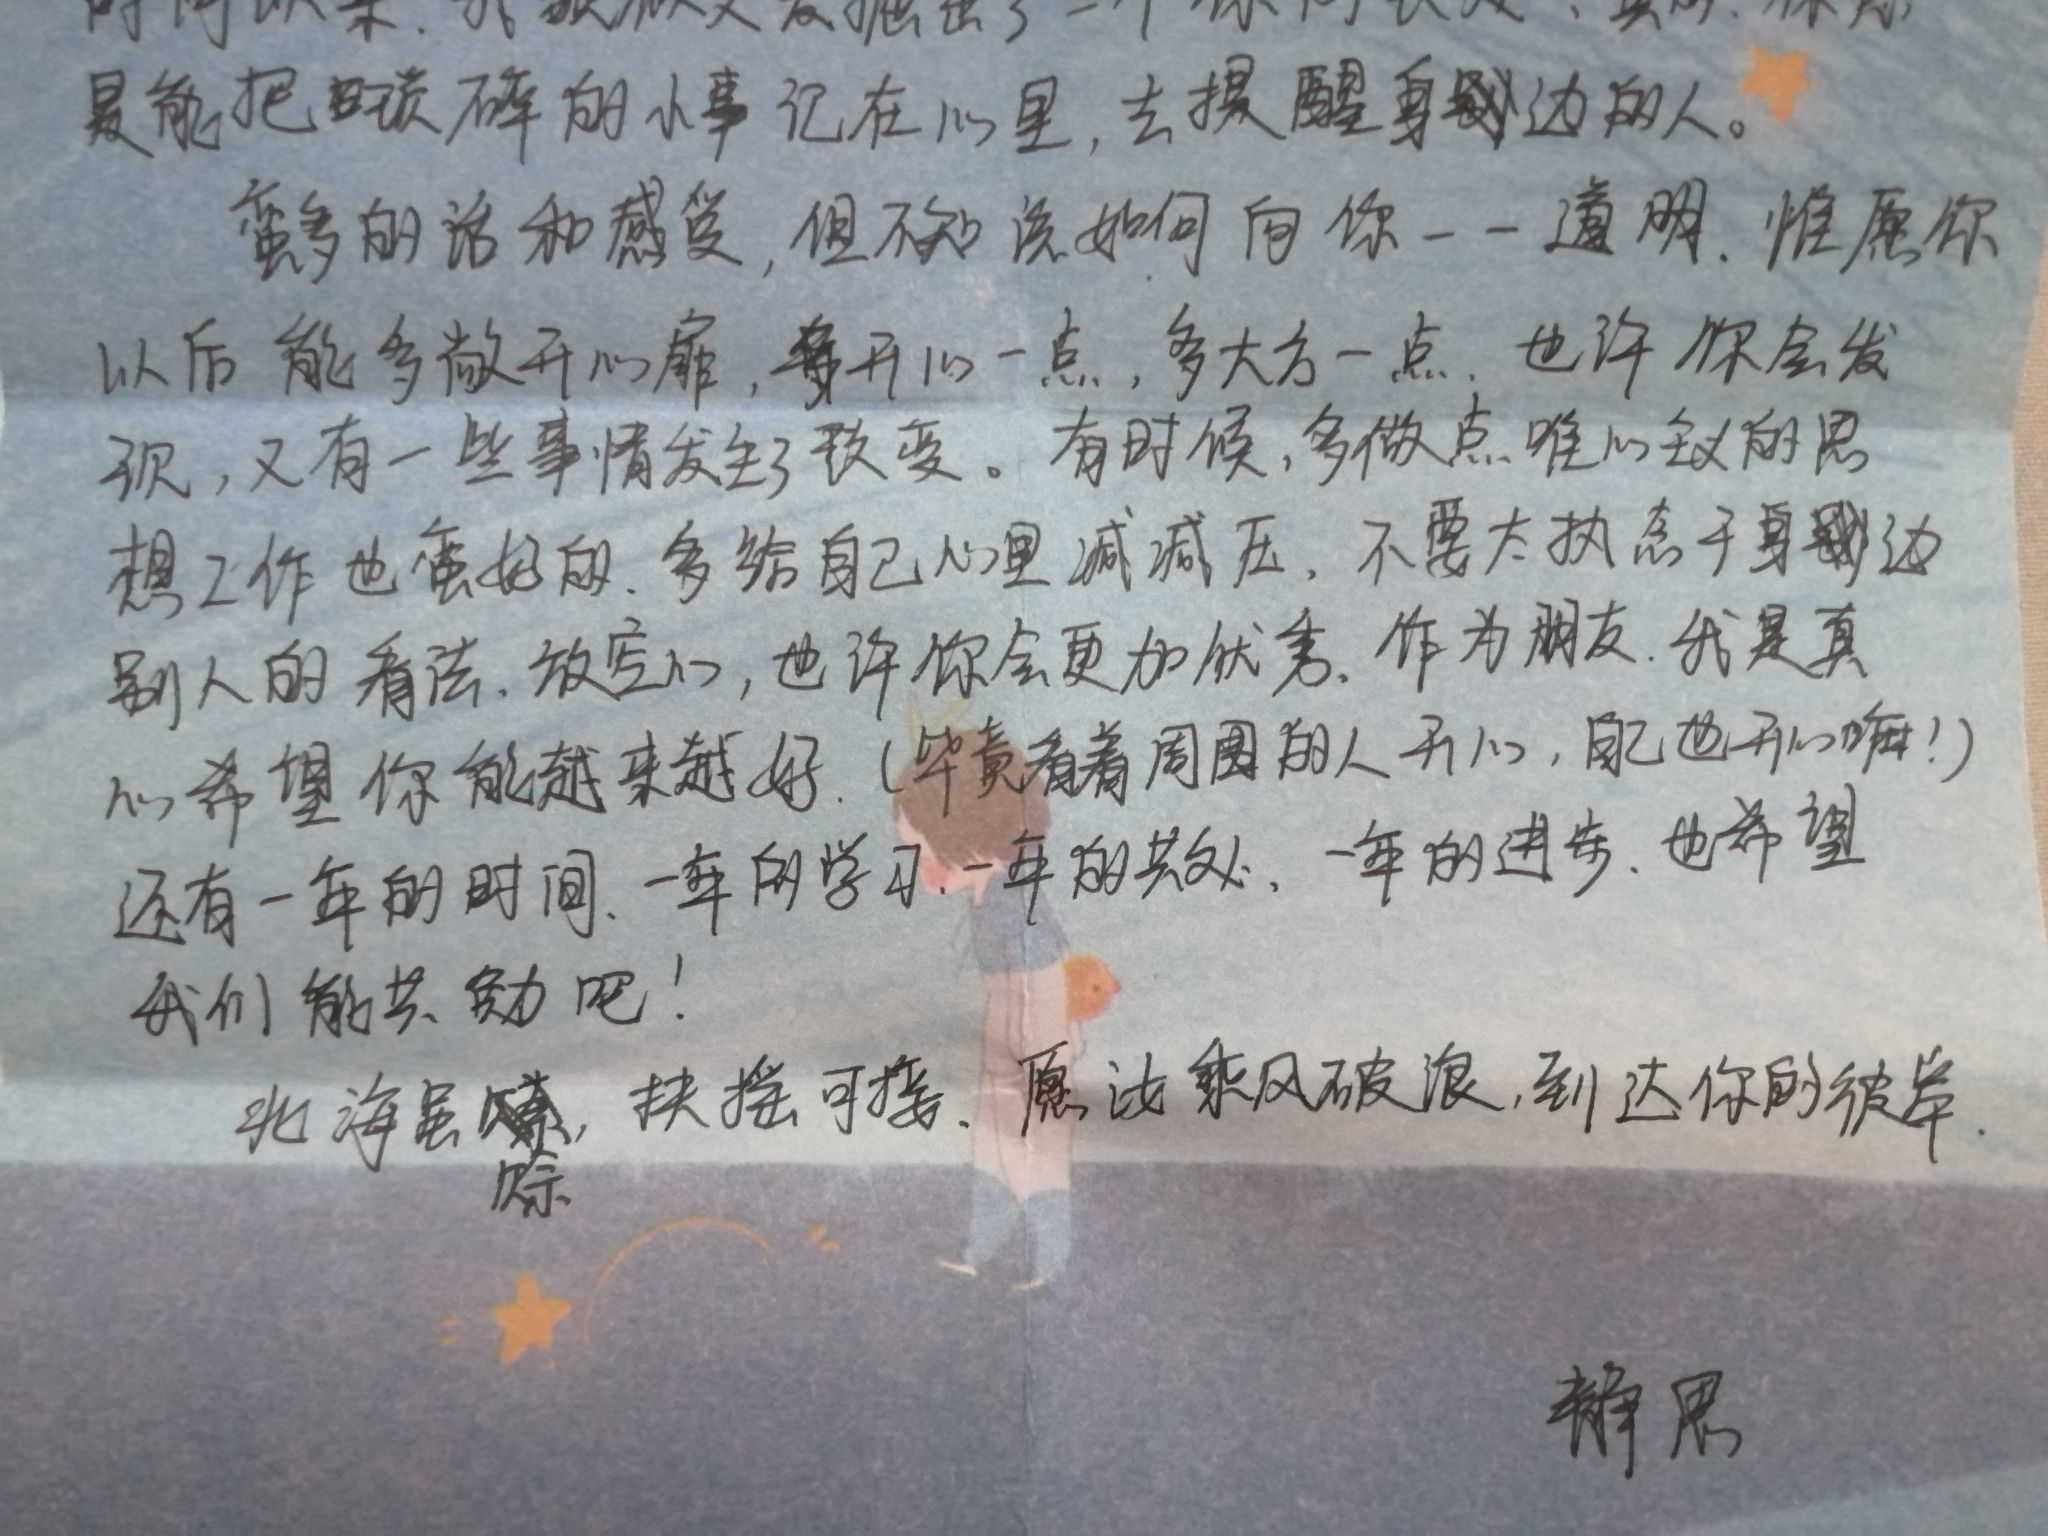 时间以来,我欣欣又发掘出了一个你的长处,真的.你总
是能把琐碎的小事记在心里,去提醒身边的人。
蛮多的话和感受,但不知该如何向你一一道明.惟愿你
以后能多敞开心扉,多开心一点,多大方一点.也许你会发
现,又有一些事情发生了改变。有时候,多做点唯心主义的思
想工作也蛮好的.多给自己心里减减压.不要太执态于身边
别人的看法.放空心,也许你会更加优秀.作为朋友.我是真
心希望你能越来越好.(毕竟看着周围的人开心,自己也开心嘛!)
还有一年的时间.一年的学习.一年的共处.一年的进步.也希望
我们能共勉吧!
北海虽赊,扶摇可接.愿汝乘风破浪,到达你的彼岸.
静思